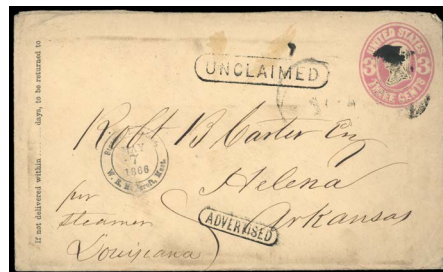 If not delivered within ...... days, to be returned to
UNCLAIMED
UNITED STATES
3 3
THREE CENTS
Robt B Carter Esq
MAY
7
1866
W. R.
Helena
Arkansas
per
steamer
Louisiana
ADVERTISED